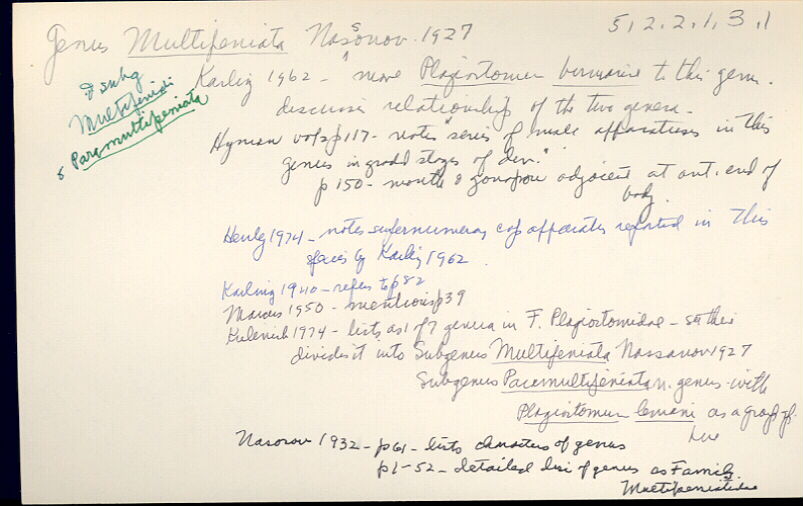 Genus Multipeniata Nasonov 1927
5,2.2.1,3.1
2 subg
Multipeniata
& Paramultipeniata
Karling 1962 - "move Plagiostomum to this genus.
discusses relationship of the two genera.
Hyman vol 2 p 117 - notes "series of male apparatuses in this
genus in grad stages of dev."
p 150 - mouth & gonopore adjacent at ant. end of
body.
Henley 1974 - notes supernumerary cop apparatus reported in this
species by Karling 1962.
Karling 1940 - refers to p 82
Marcus 1950 - mentions p 39
1974 - lists as 1 of 7 genera in F. Plagiostomidae -
divides it into Subgenus Multipeniata Nassanov 1927
Subgenus Paramultipeniata n. genus with
Plagiostomum as a
Nasonov 1932 - p 61 - lists characters of genus
p 1-52 - detailed disc of genus as Family
Multipeniatidae